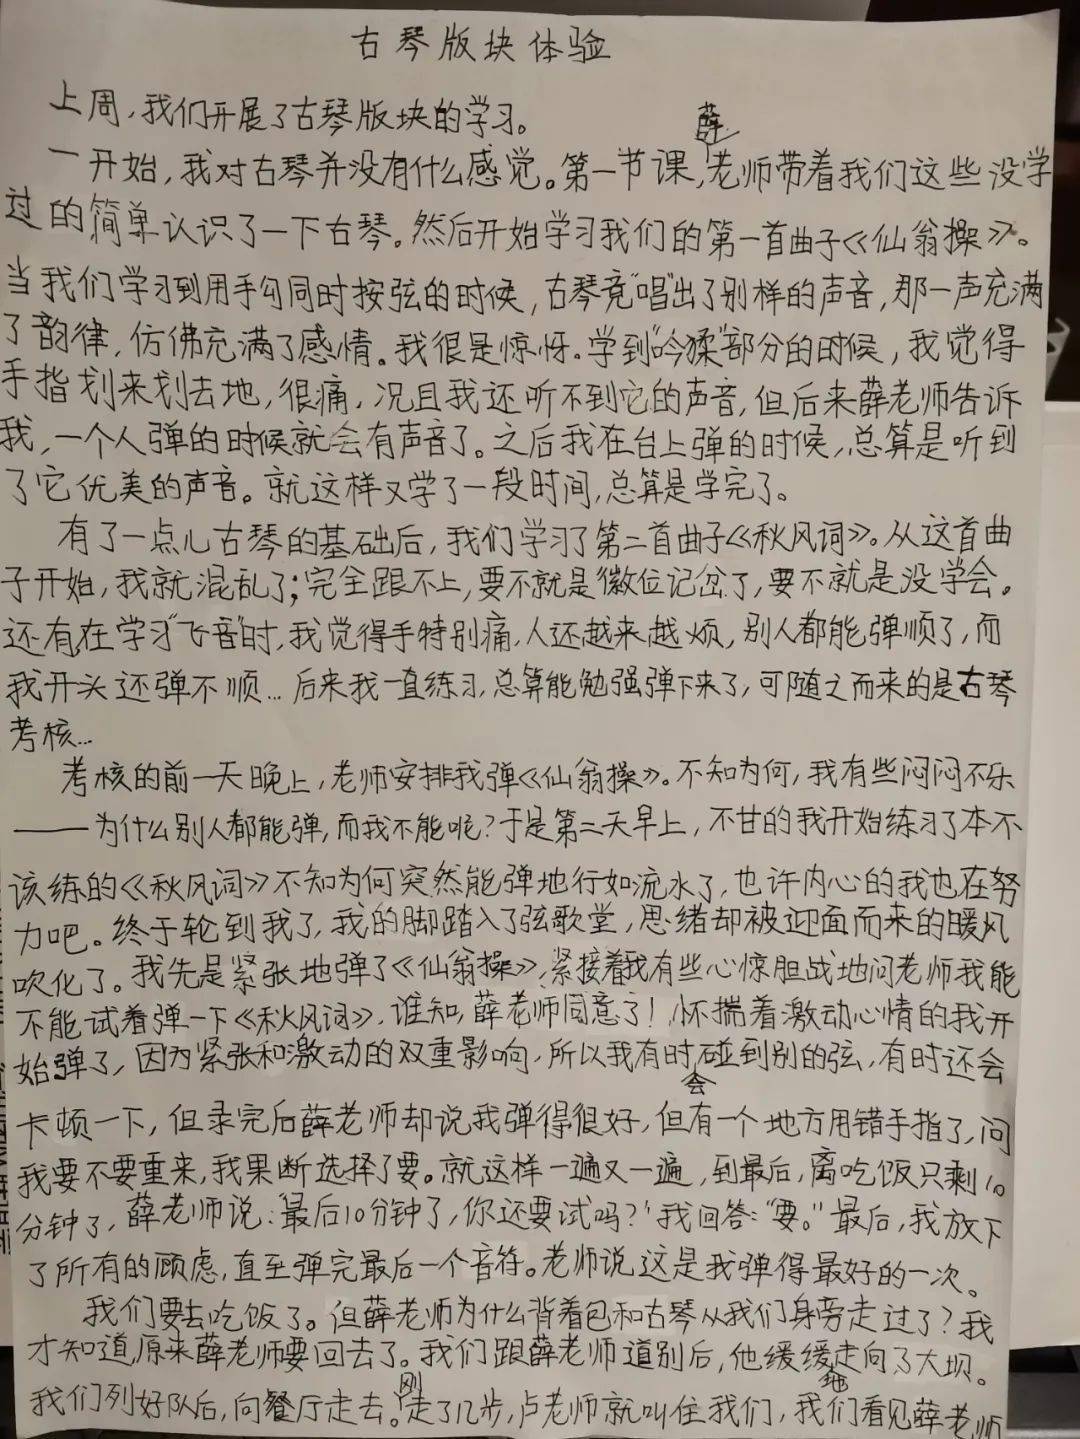 古琴版块体验
上周,我们开展了古琴版块的学习。
一开始,我对古琴并没有什么感觉。第一节课,薛老师带着我们这些没学
过的简单认识了一下古琴。然后开始学习我们的第一首曲子《仙翁操》。
当我们学习到用手勾同时按弦的时候,古琴竟"唱"出了别样的声音,那一声充满
了韵律,仿佛充满了感情。我很是惊怀.学到"吟猱"部分的时候,我觉得
手指划来划去地,很痛,况且我还听不到它的声音,但后来薛老师告诉
我,一个人弹的时候就会有声音了。之后我在台上弹的时候,总算是听到
了它优美的声音。就这样又学了一段时间,总算是学完了。
有了一点儿古琴的基础后,我们学习了第二首曲子《秋风词》。从这首曲
子开始,我就混乱了;完全跟不上,要不就是徽位记岔了,要不就是没学会。
还有在学习"飞音"时,我觉得手特别痛,人还越来越烦,别人都能弹顺了,而
我开头还弹不顺...后来我一直练习,总算能勉强弹下来了,可随之而来的是古琴
考核...
考核的前一天晚上,老师安排我弹《仙翁操》。不知为何,我有些闷闷不乐
——为什么别人都能弹,而我不能呢?于是第二天早上,不甘的我开始练习了本不
该练的《秋风词》不知为何突然能弹地行如流水了,也许内心的我也在努
力吧。终于轮到我了,我的脚踏入了弦歌堂,思绪却被迎面而来的暖风
吹化了。我先是紧张地弹了《仙翁操》,紧接着我有些心惊胆战地问老师我能
不能试着弹一下《秋风词》,谁知,薛老师同意了!怀揣着激动心情的我开
始弹了,因为紧张和激动的双重影响,所以我有时会碰到别的弦,有时还会
卡顿一下,但录完后薛老师却说我弹得很好,但有一个地方用错手指了,问
我要不要重来,我果断选择了要。就这样一遍又一遍,到最后,离吃饭只剩10
分钟了,薛老师说:"最后10分钟了,你还要试吗?"我回答:"要。"最后,我放下
了所有的顾虑,直至弹完最后一个音符。老师说这是我弹得最好的一次。
我们要去吃饭了。但薛老师为什么背着包和古琴从我们身旁走过了?我
才知道,原来薛老师要回去了。我们跟薛老师道别后,他缓缓走向了大坝。
我们列好队后,向餐厅走去。刚走了几步,卢老师就叫住我们,我们看见薛老师